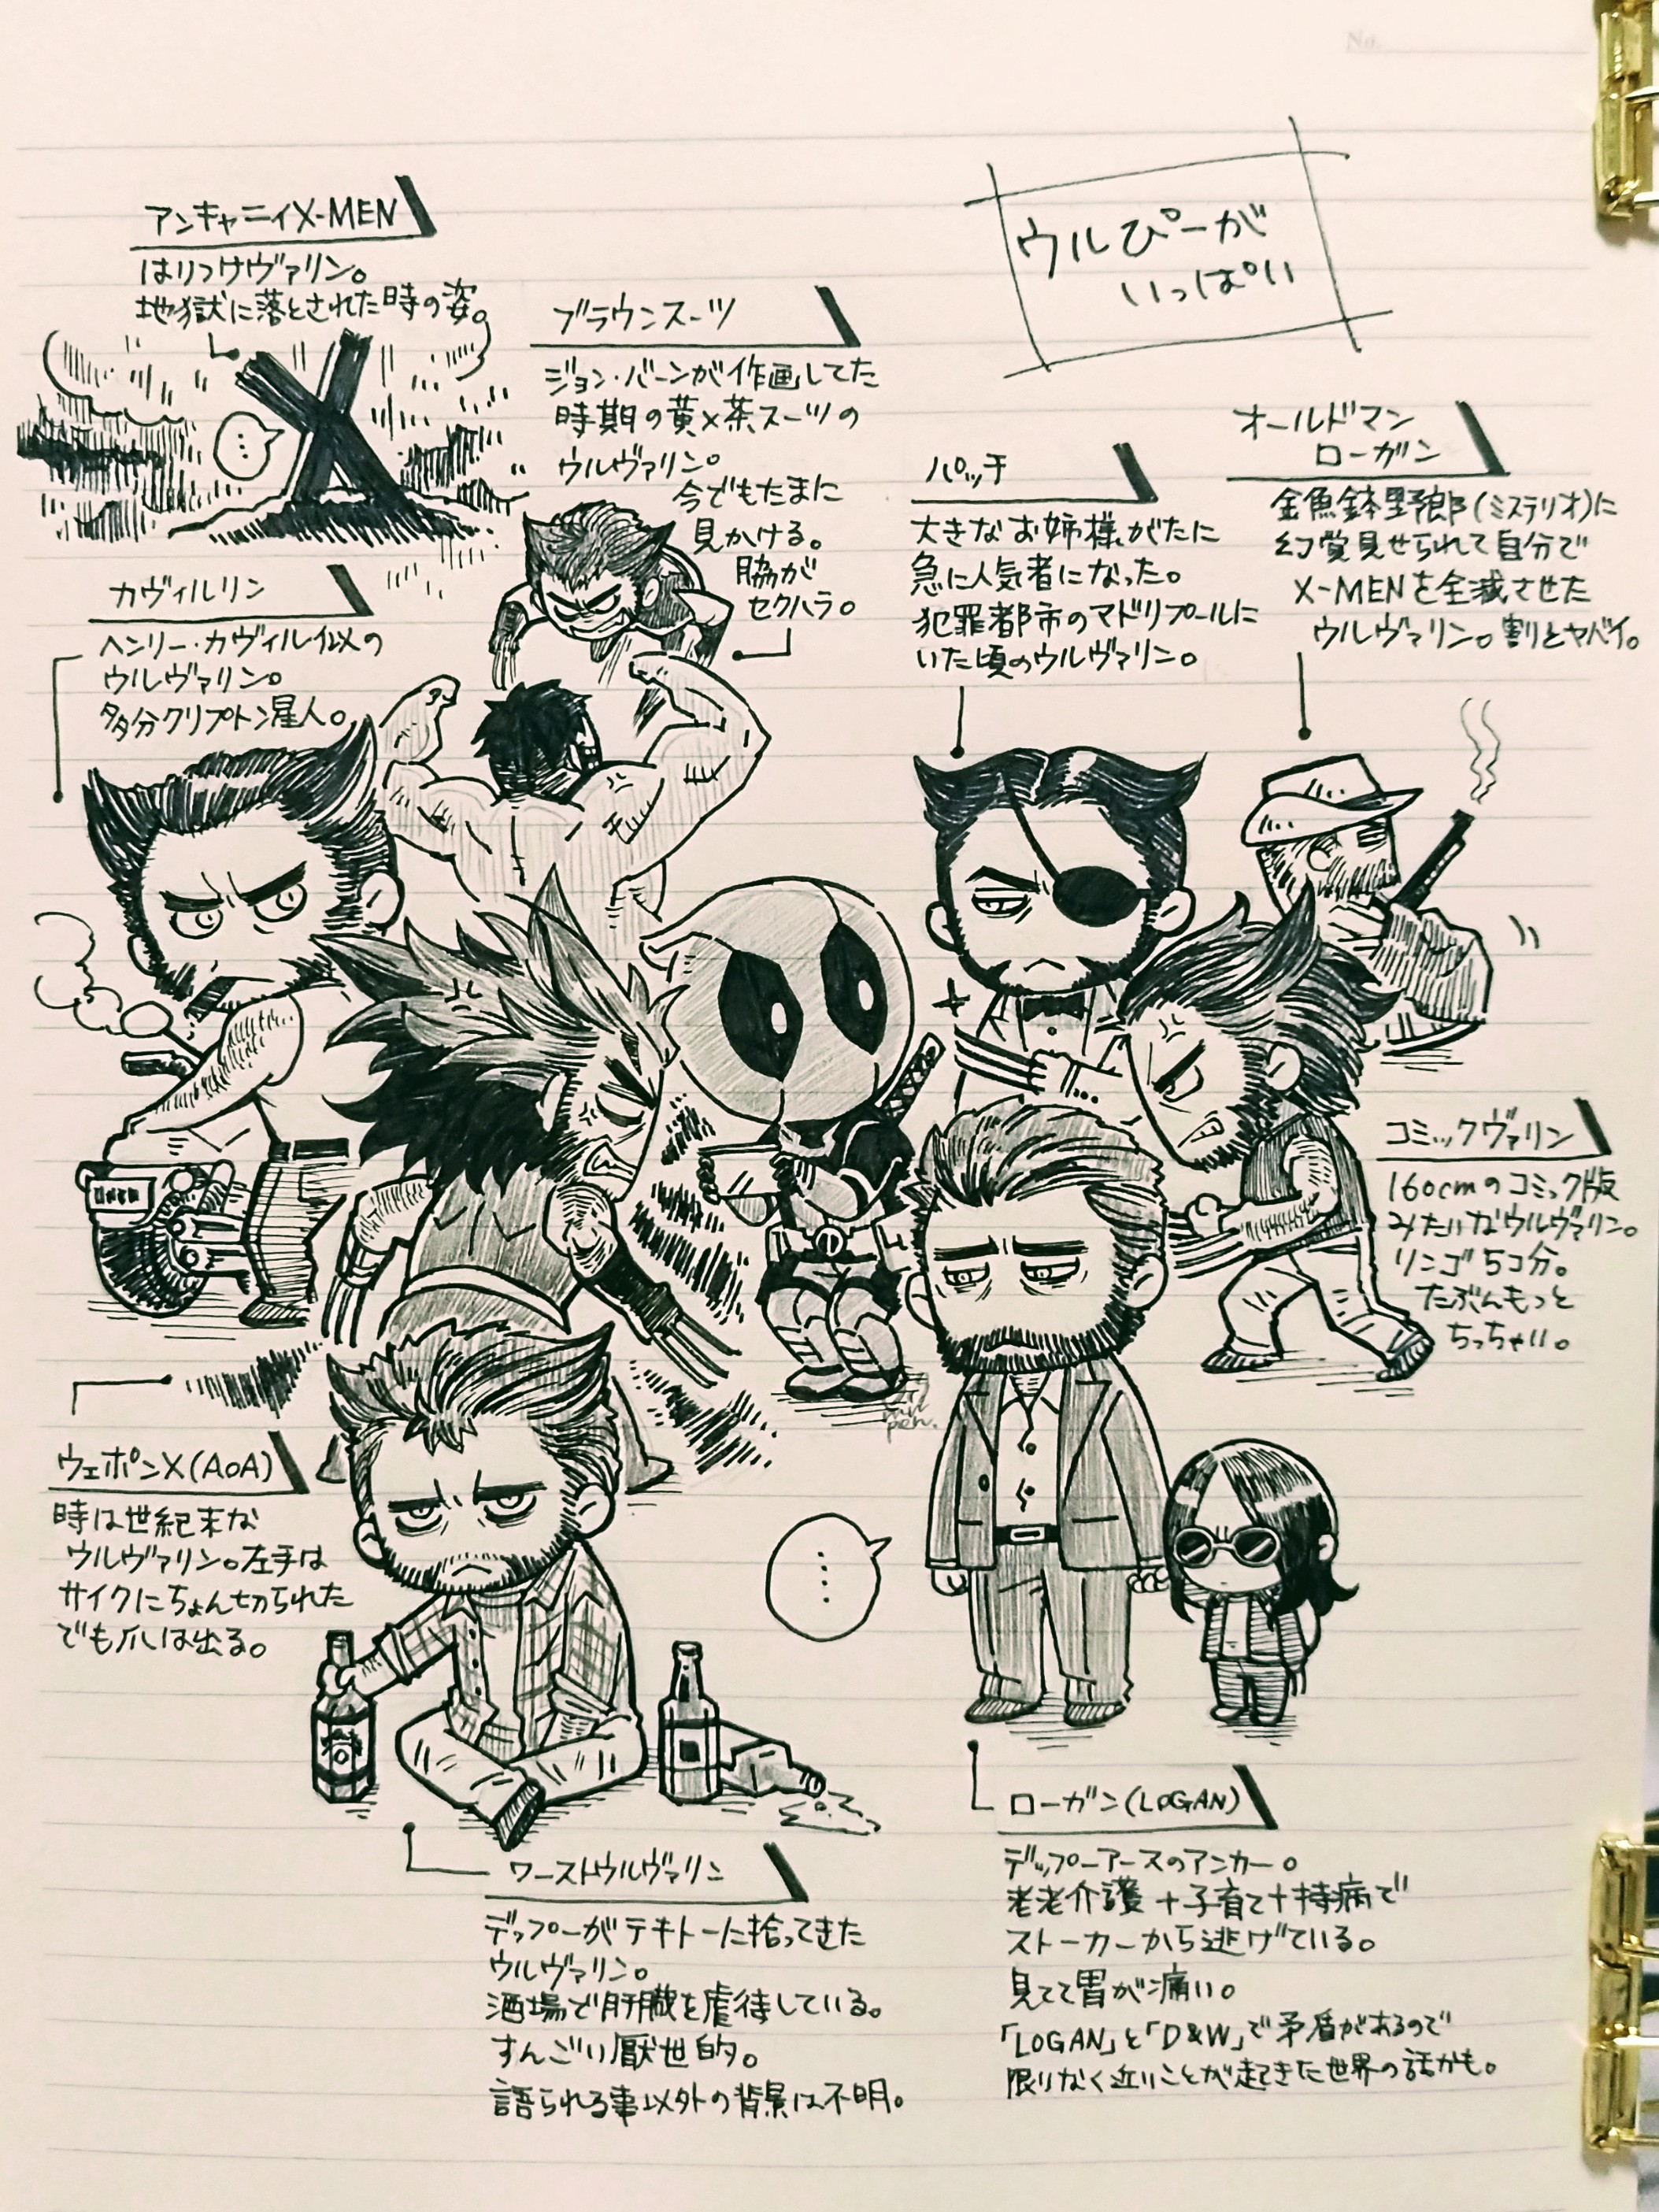 No.
ウルぴーが
いっぱい
アンキャニィX-MEN
はりつけヴァリン。
地獄に落とされた時の姿。
ブラウンスーツ
ジョン・バーンが作画してた
時期の黄×茶スーツの
ウルヴァリン。
今でもたまに
見かける。
脇が
セクハラ。
パッチ
大きなお姉様がたに
急に人気者になった。
犯罪都市のマドリプールに
いた頃のウルヴァリン。
オールドマン
ローガン
金魚鉢野郎(ミステリオ)に
幻覚見せられて自分で
X-MENを全滅させた
ウルヴァリン。割とヤバイ。
カヴィルリン
ヘンリー・カヴィル似の
ウルヴァリン。
多分クリプトン星人。
コミックヴァリン
160cmのコミック版
みたいなウルヴァリン。
リンゴ5コ分。
たぶんもっと
ちっちゃい。
ウェポンX(AoA)
時は世紀末な
ウルヴァリン。左手は
サイクにちょん切られた
でも爪は出る。
ワーストウルヴァリン
デップーがテキトーに拾ってきた
ウルヴァリン。
酒場で肝臓を虐待している。
すんごい厭世的。
語られる事以外の背景は不明。
ローガン(LOGAN)
デップーアースのアンカー。
老老介護+子育て+持病で
ストーカーから逃げている。
見てて胃が痛い。
「LOGAN」と「D&W」で矛盾があるので
限りなく近いことが起きた世界の話かも。